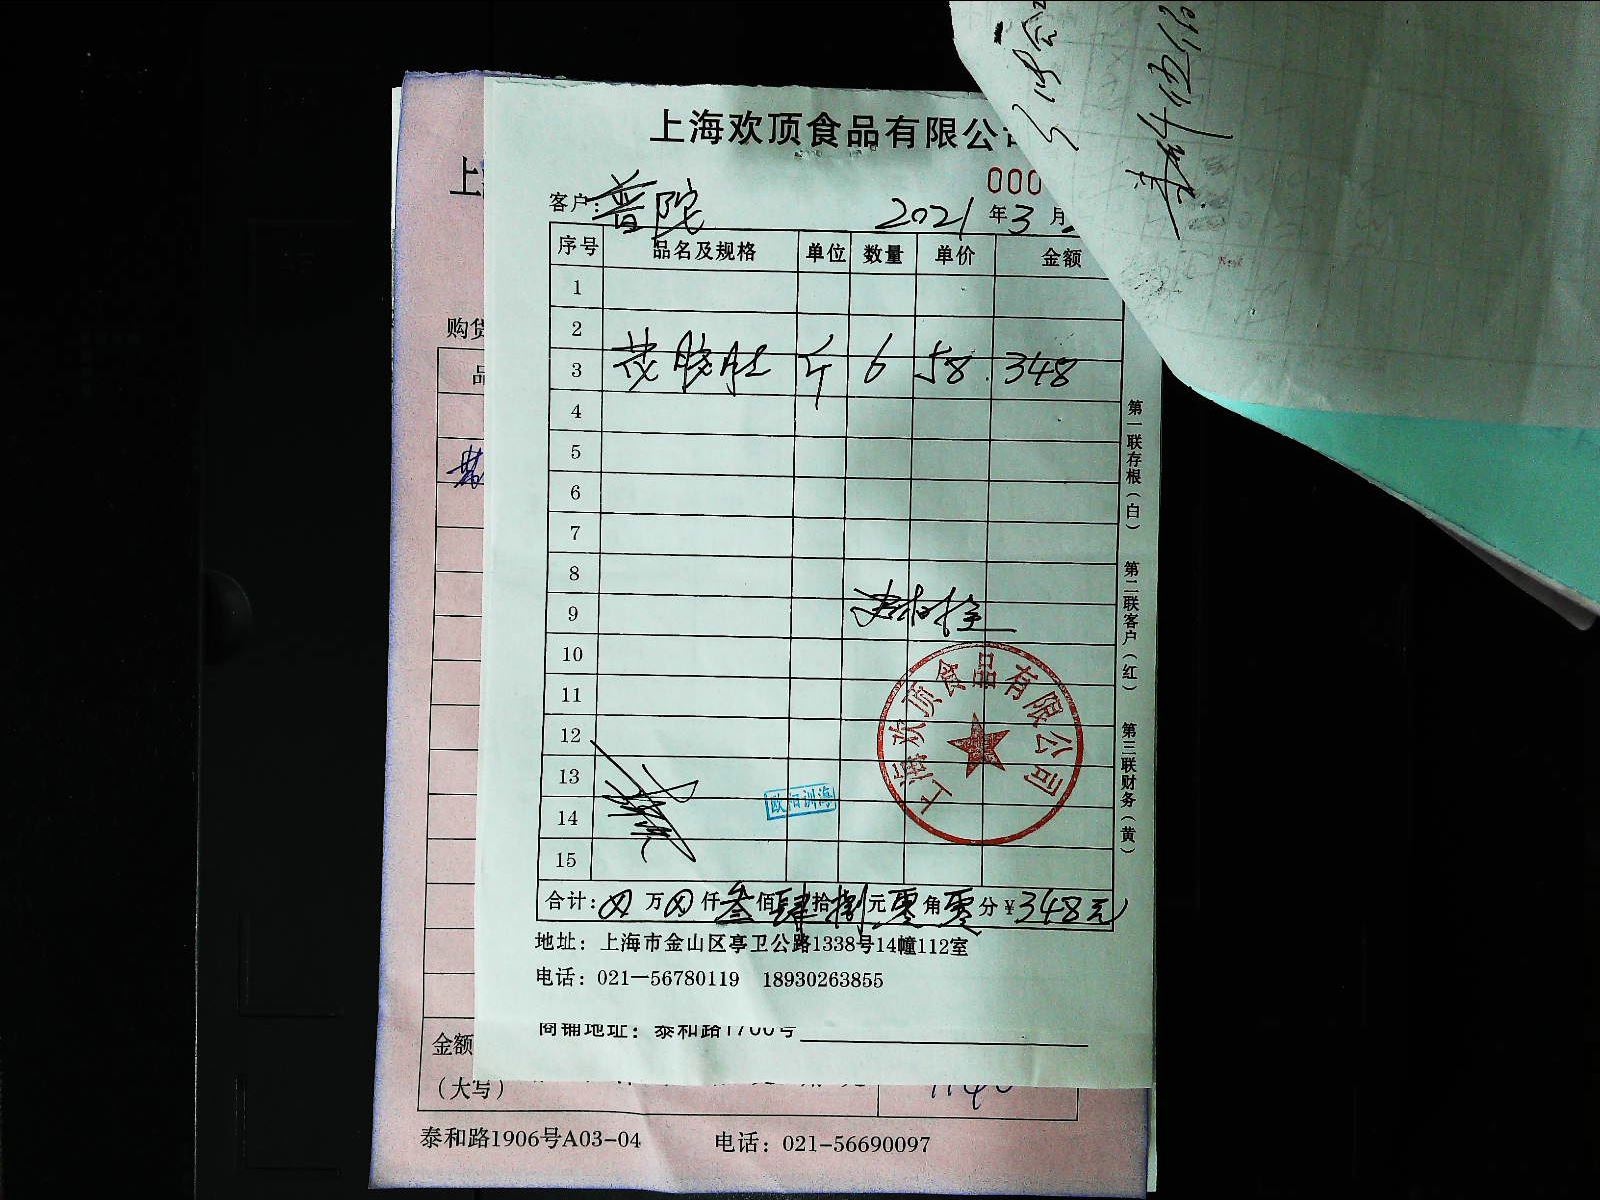 上海欢顶食品有限公
000
客户：普陀 2021年3月
序号 品名及规格 单位 数量 单价 金额
1
2
3 斤 6 58 348
4
5
6
7
8
9
10
11
12
13
14
15
上海欢顶食品有限公司
合计： 万 仟叁佰肆拾捌元零角零分￥348元
地址：上海市金山区亭卫公路1338号14幢112室
电话：021—56780119 18930263855
商铺地址：泰和路1700号
第一联存根（白） 第二联客户（红） 第三联财务（黄）
上
购货
品
金额
（大写）
泰和路1906号A03-04 电话：021-56690097